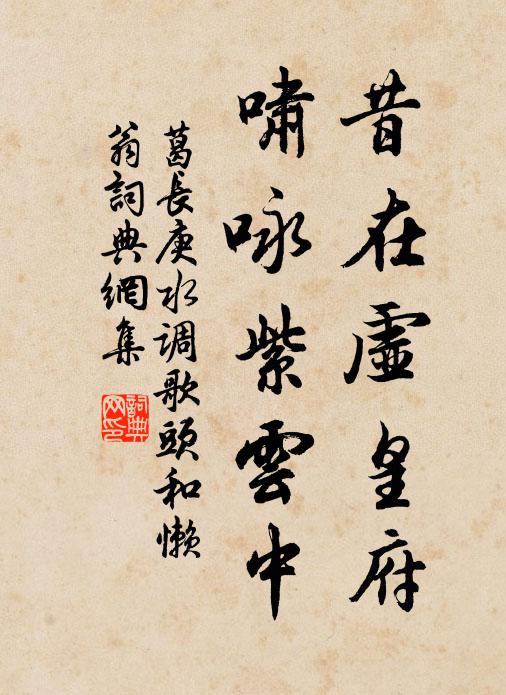 昔在虛皇府
嘯咏紫雲中
葛長庚水调歌頭和懒
翁詞典網集
詞典
网印